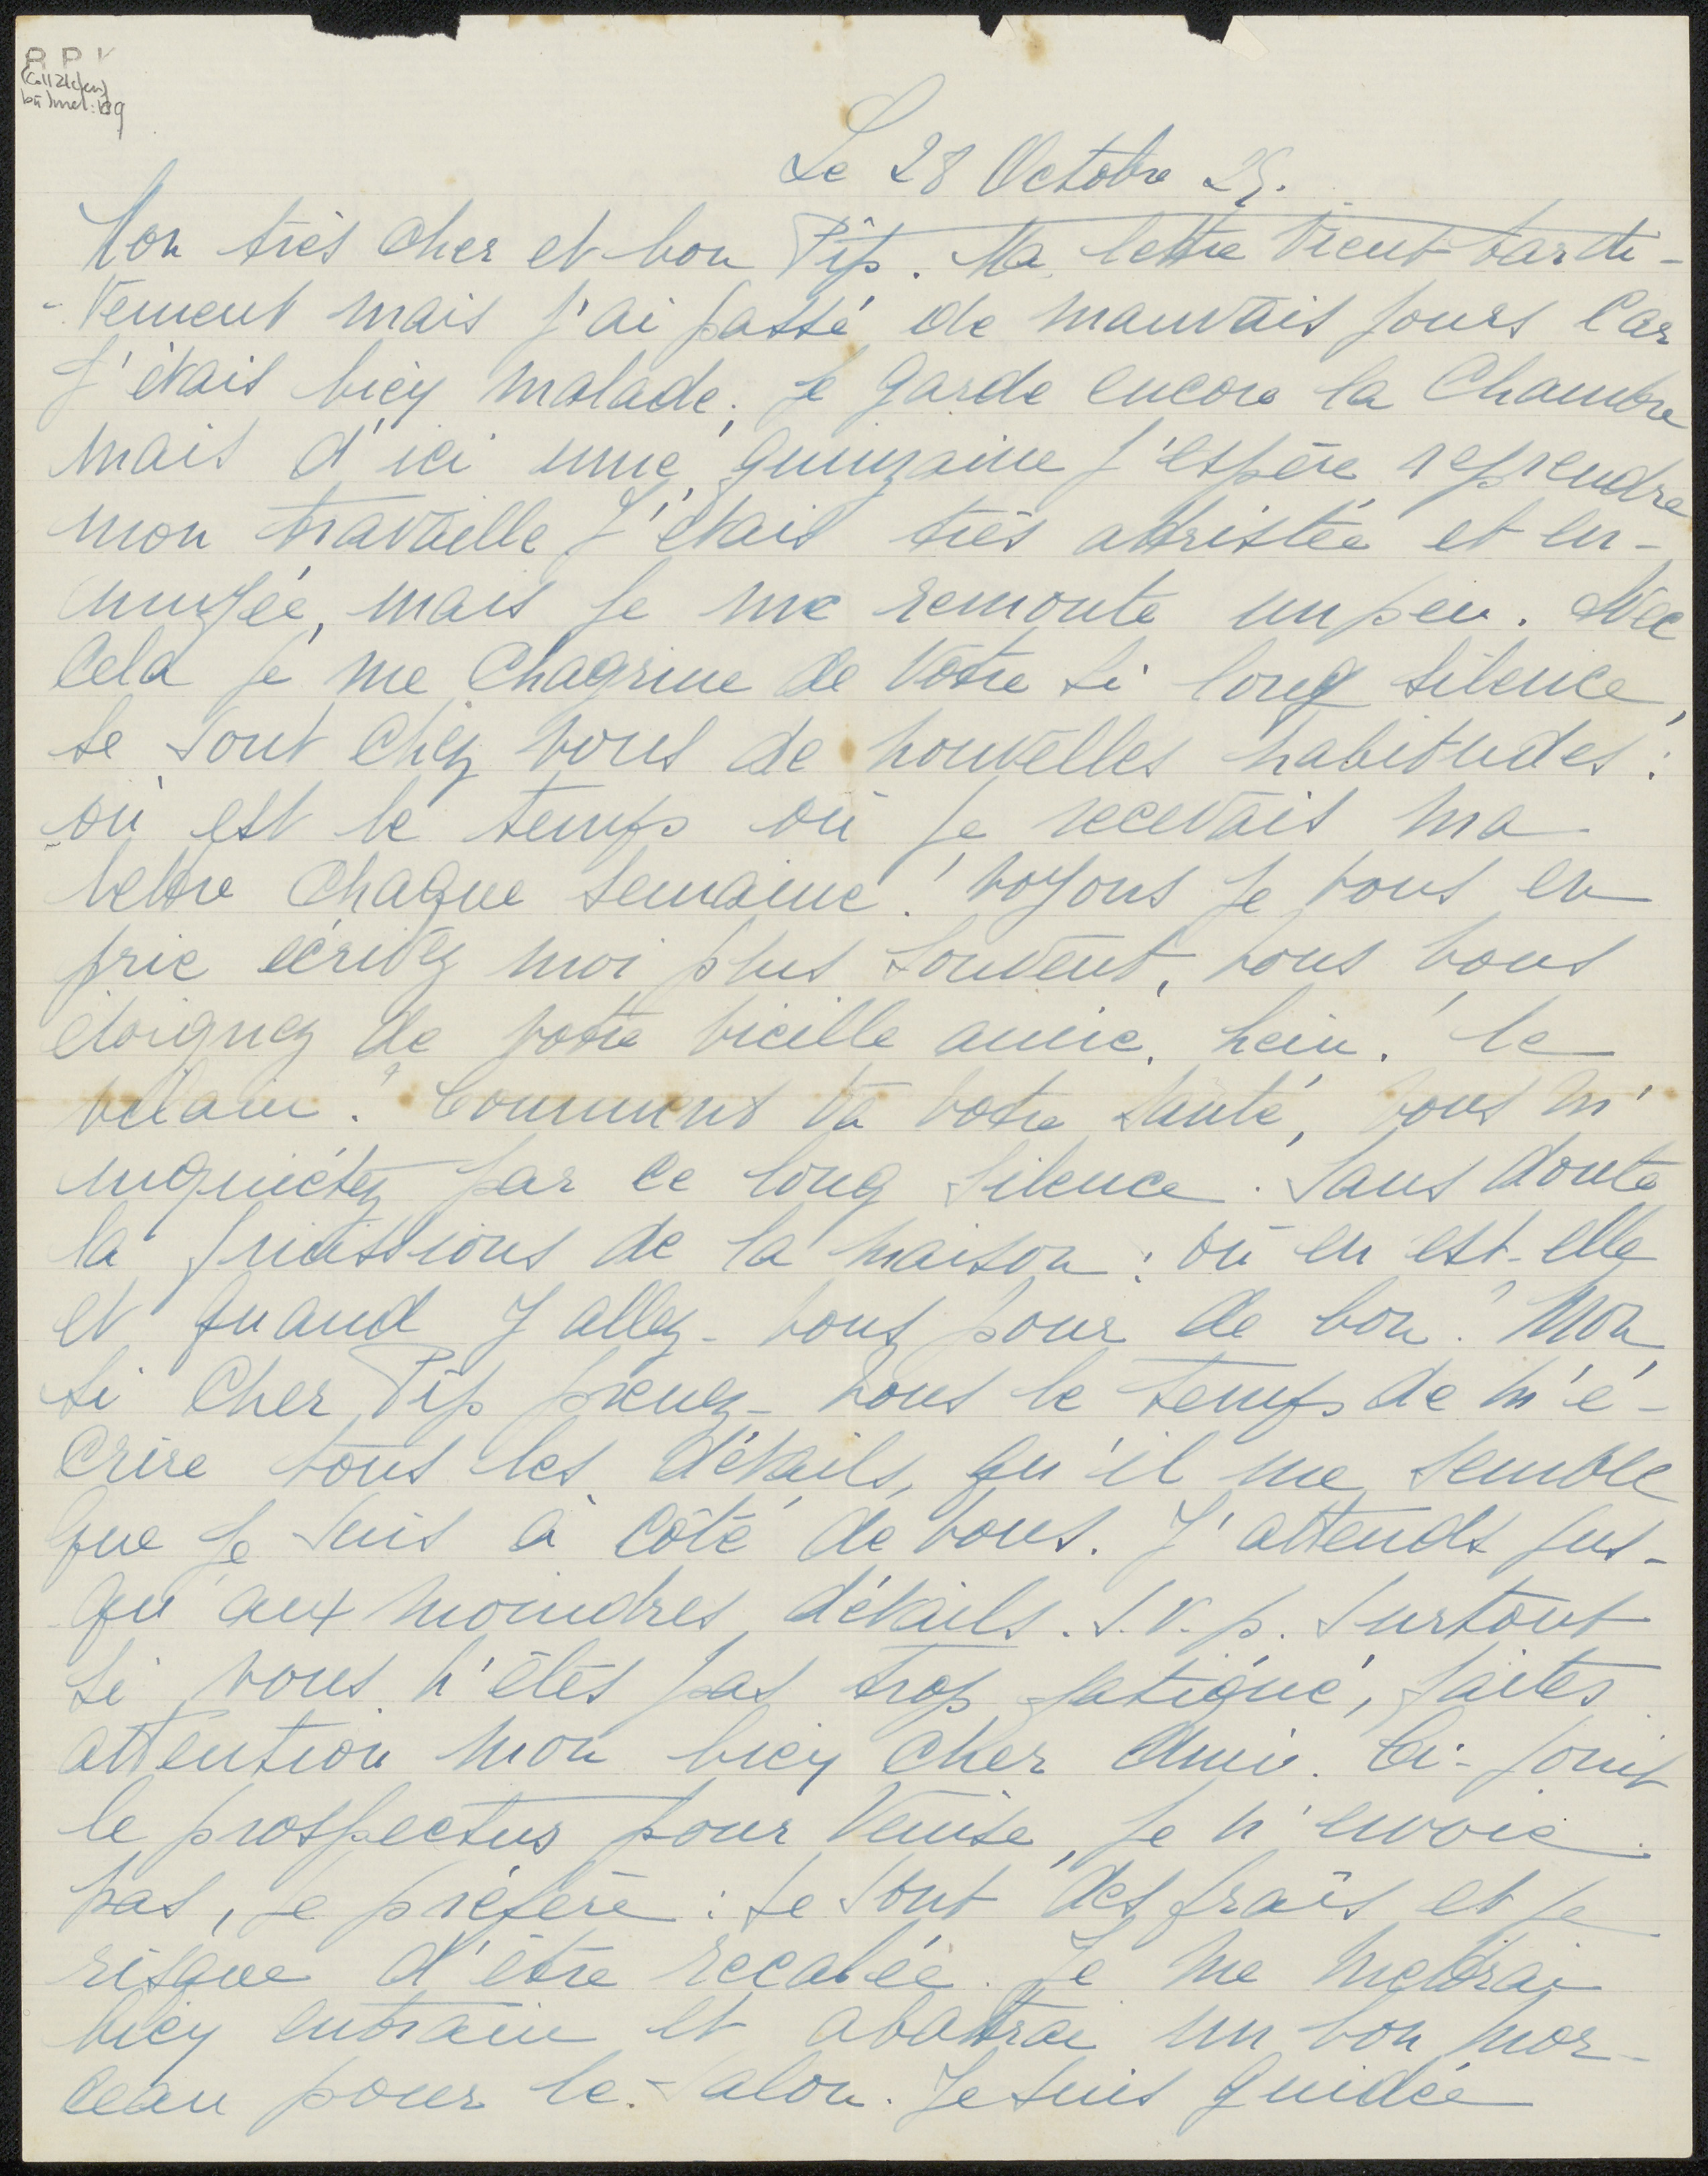 Le 28 Octobre 25.
Mon très cher et bon Pîp. Ma lettre vient tardi-
-vement mais j'ai passé de mauvais jours car
j'étais bien malade. Je garde encore la Chambre
mais d'ici une quinzaine j'espère reprendre
mon travaille J'étais très attristée et en-
nuyée, mais je me remonte un peu. Avec
cela je me chagrine de votre si long silence,
se sont chez vous de nouvelles habitudes:
où est le temps où je recevais ma
lettre chaque semaine! voyons je vous en
prie écrivez moi plus souvent, vous vous
éloignez de votre vieille amie, hein! le
vilain! Comment va votre santé, vous m'
inquiétez par ce long silence. Sans doute
la de la maison: où en est-elle
et quand y allez-vous pour de bon? Mon
si cher Pîp prenez-vous le temps de m'é-
crire tous les détails, qu'il me semble
que je suis à côté de vous. J'attends jus-
qu'aux moindres détails. s.v.p. surtout
si vous n'êtes pas trop fatigué, faites
attention mon bien cher Ami. Ci-joint
le prospectus pour Venise, je n'envoie
pas, je préfère: se sont des frais et je
risque d'être recalée. Je me mettrai
bien entrain et abattrai un bon mor-
ceau pour le Salon. Je suis guidée